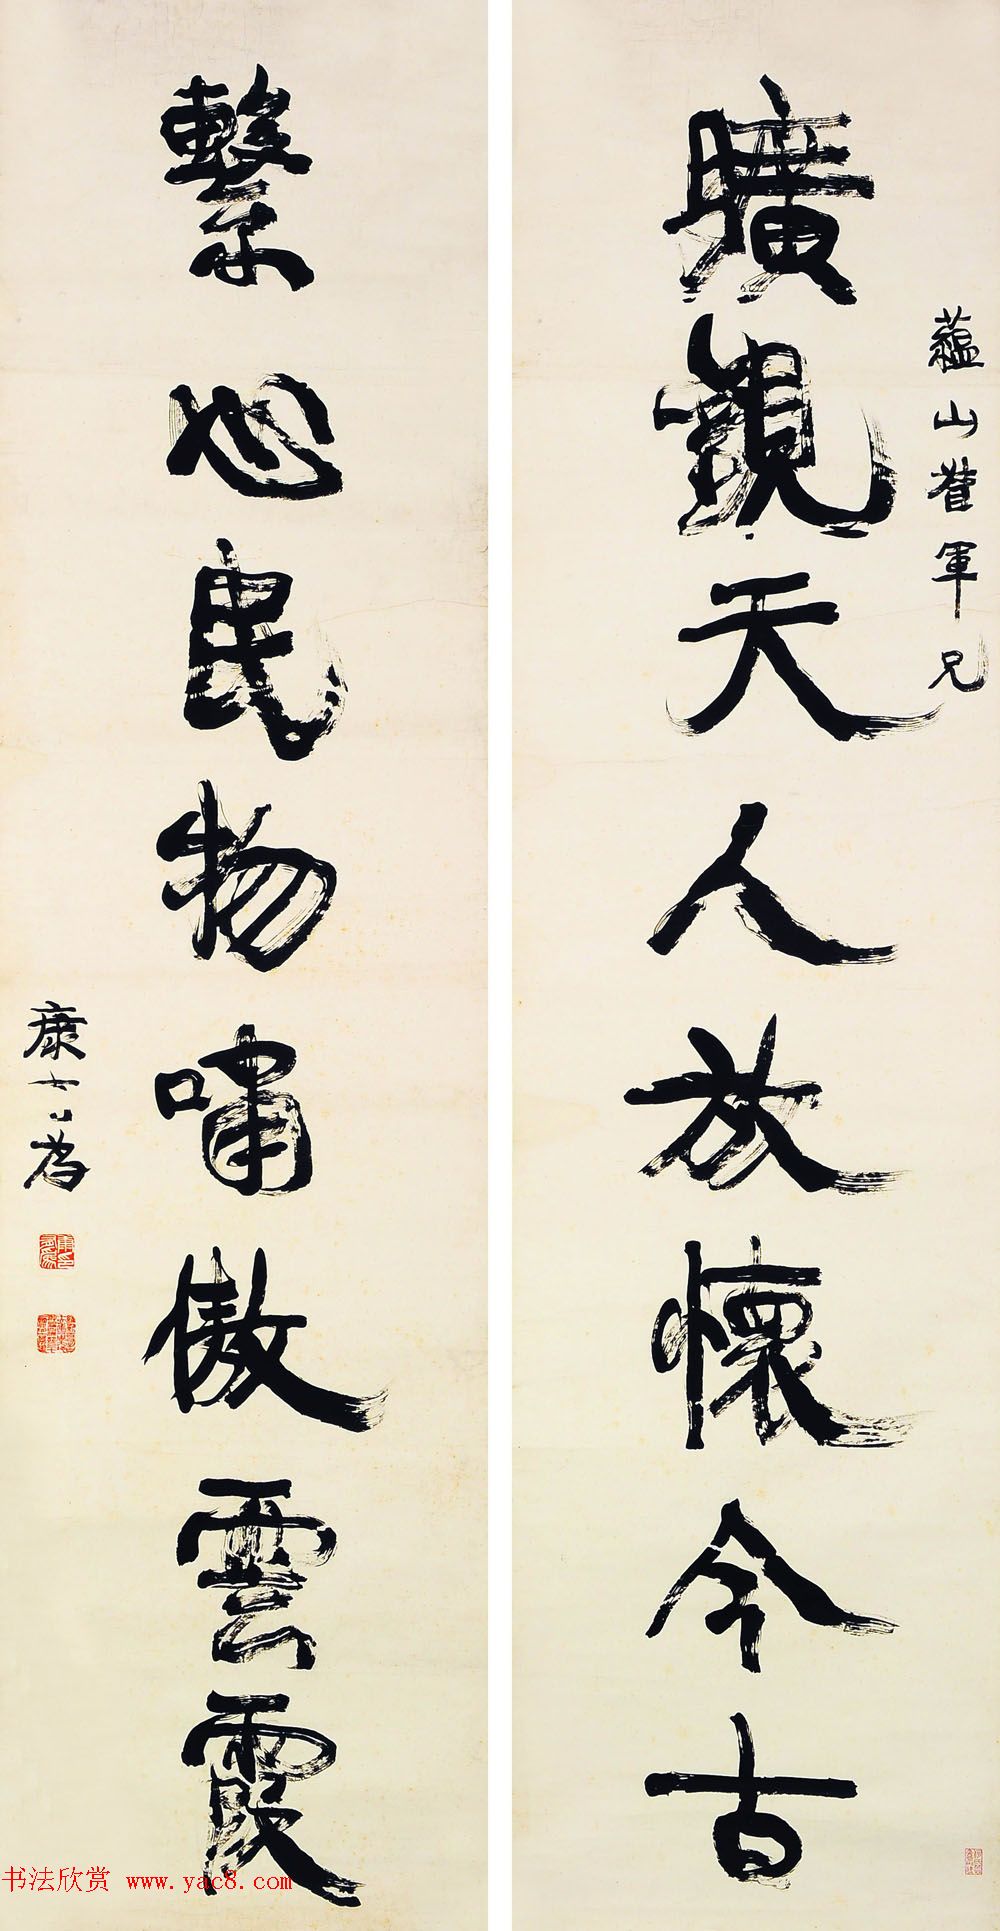 蘊山督軍兄
曠觀天人放懷今古
繫心民物嘯傲雲霞
康有為
书法欣赏 www.yac8.com